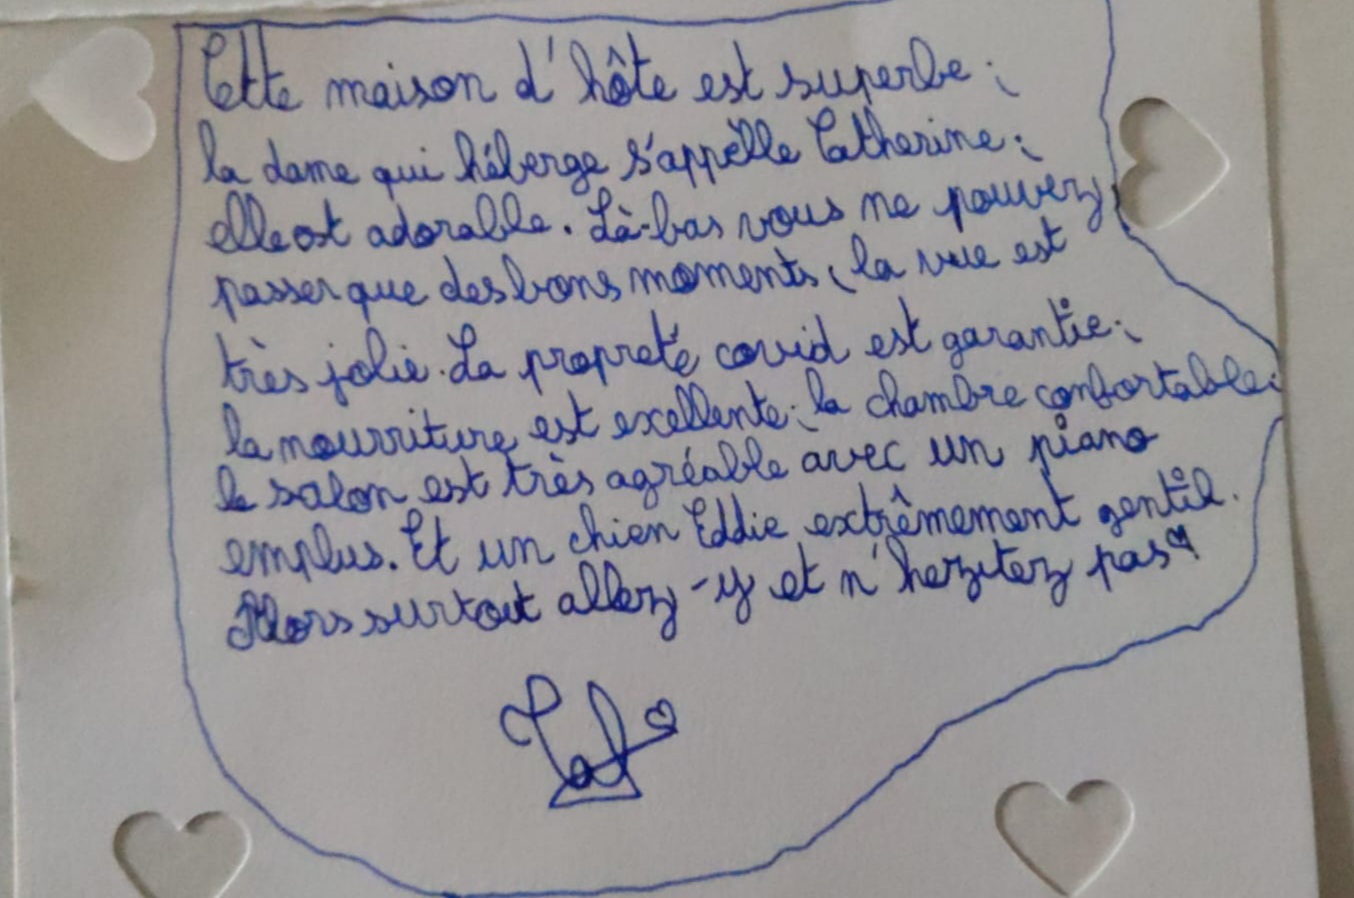 Cette maison d'hôte est superbe ;
la dame qui héberge s'appèlle Catherine ;
elle est adorable. Là-bas vous ne pouvez
passer que des bons moments, la vue est
très jolie. La propreté covid est garantie ;
la nourriture est excellente ; la chambre confortable ;
le salon est très agréable avec un piano
emplus. Et un chien Eddie extrêmement gentil.
Alors surtout allez-y et n'hezitez pas